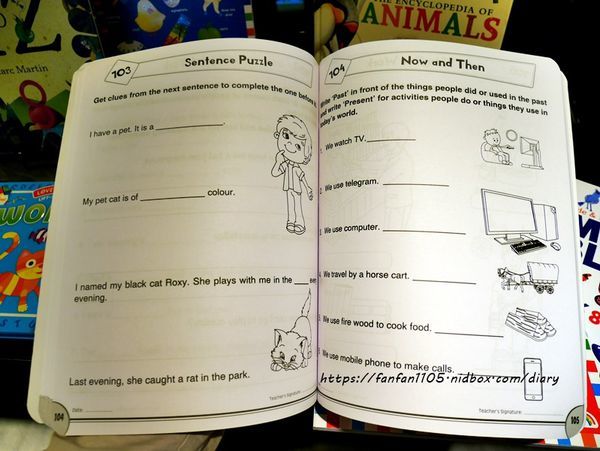 arc Martin
THE ENCYCLOPEDIA OF
ANIMALS
103
Sentence Puzzle
Get clues from the next sentence to complete the one before it.
I have a pet. It is a ____________.
My pet cat is of ____________ colour.
I named my black cat Roxy. She plays with me in the ___
evening.
Last evening, she caught a rat in the park.
Date:
Teacher's Signature:
104
104
Now and Then
Write 'Past' in front of the things people did or used in the past
and write 'Present' for activities people do or things they use in
today's world.
We watch TV. ____________
2. We use telegram. ____________
3. We use computer. ____________
We travel by a horse cart. ____________
We use fire wood to cook food. ____________
We use mobile phone to make calls. ____________
Teacher's Signature:
105
https://fanfan1105.nidbox.com/diary